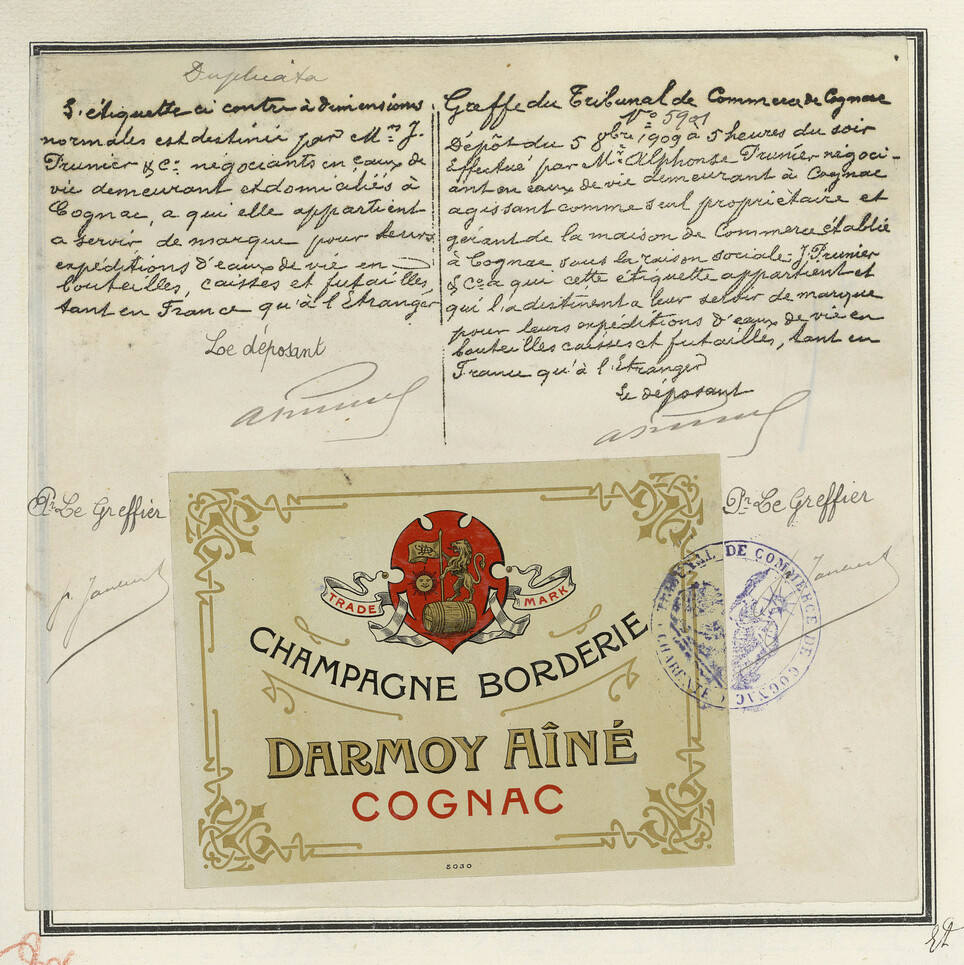 Duplicata
L'étiquette ci contre à dimensions
normales est destinée par Mrs J.
Prunier & Co. négociants en eaux de
vie demeurant et domiciliés à
Cognac, a qui elle appartient
a servir de marque pour leurs
expéditions d'eaux de vie en
bouteilles, caisses et futailles,
tant en France qu'à l'Etranger
Le déposant
Greffe du Tribunal de Commerce de Cognac
No 5901
Dépôt du 5 8bre 1909 à 5 heures du soir
Effectué par Mr Alphonse Prunier négoci-
ant en eaux de vie demeurant à Cognac
agissant comme seul propriétaire et
gérant de la maison de Commerce établie
à Cognac sous la raison sociale J. Prunier
& Co a qui cette étiquette appartient et
qui l'a destinent a leur servir de marque
pour leurs expéditions d'eaux de vie en
bouteilles caisses et futailles, tant en
France qu'à l'Etranger
Le déposant
Pr Le Greffier
Pr Le Greffier
TRADE MARK
CHAMPAGNE BORDERIE
DARMOY AÎNÉ
COGNAC
5030
TRIBUNAL DE COMMERCE DE COGNAC
CHARENTE